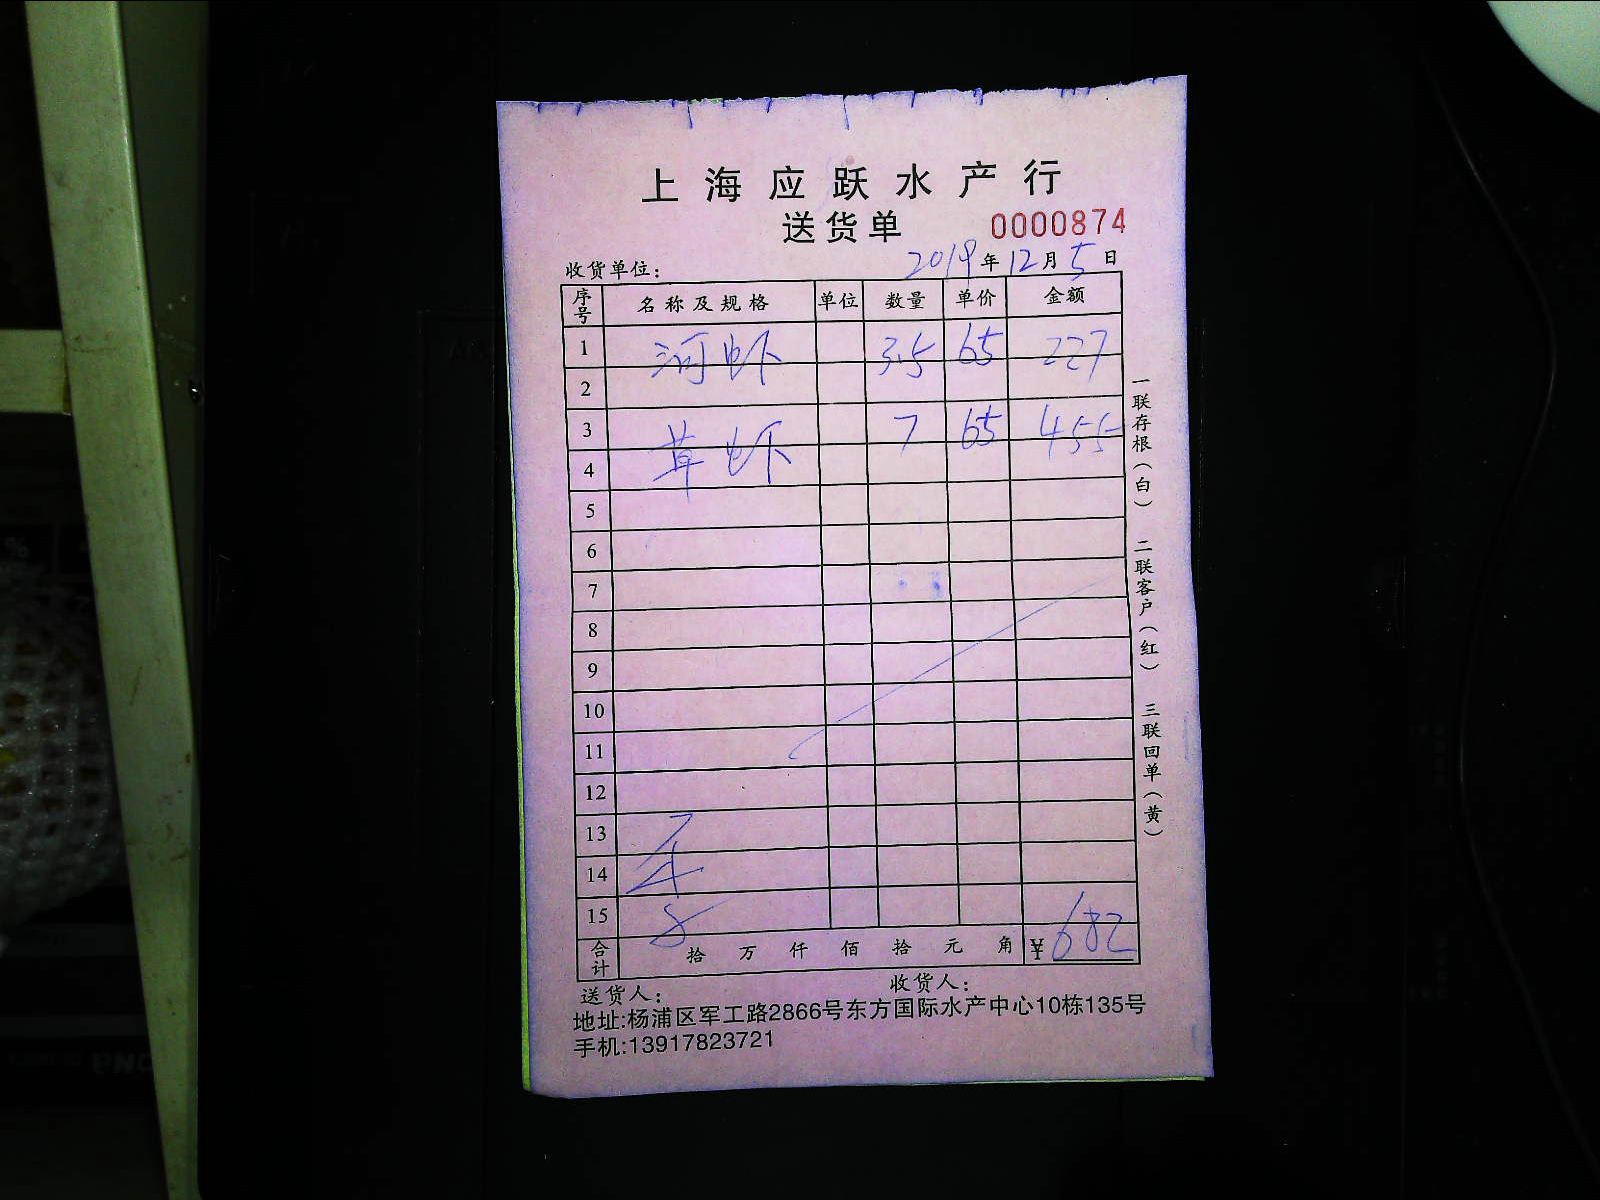 上海应跃水产行
送货单 0000874
收货单位： 2019年12月5日
序号 名称及规格 单位 数量 单价 金额
1 河虾 3.5 65 227
2
3 草虾 7 65 455
4
5
6
7
8
9
10
11
12
13
14
15
合计 拾 万 仟 佰 拾 元 角 ¥682
送货人： 收货人：
地址:杨浦区军工路2866号东方国际水产中心10栋135号
手机:13917823721
一联存根（白） 二联客户（红） 三联回单（黄）